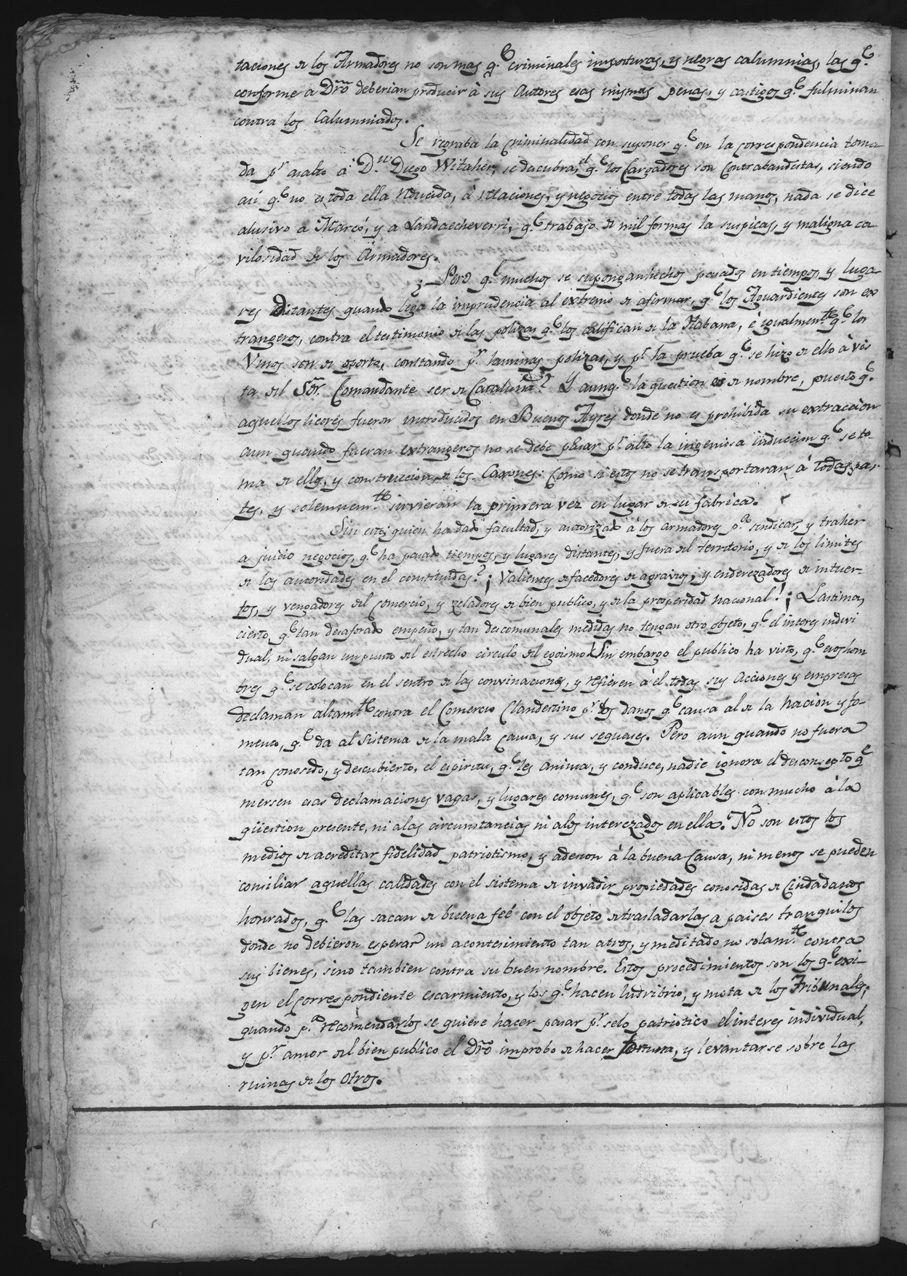 taciones de los Armadores no son mas q.e criminales imposturas, y negras calumnias, las q.e
conforme a Dro deberian producir a sus Autores esas mismas penas, y castigos q.e fulminan
contra los Calumniados.
Se recraba la criminalidad con suponer q.e en la correspondencia toma-
da p.r asalto â D.n Diego Witaker, se descubra q.e los Cargadores son Contrabandistas, siendo
asi q.e no es toda ella reducida, â relaciones, y negocios entre todas las manos, nada se dice
alusivo â Marcó, y a Landaecheverri, q.e trabajo de mil formas la suspicas, y maligna ca-
vilosidad de los Armadores.
¿Pero q.e mucho se supongan hechos pasados en tiempos y luga-
res Distantes quando llega la imprudencia al extremo de afirmar, q.e los Aguardientes son ex-
trangeros, contra el testimonio de las polizas q.e los califican de la Habana, é igualmen.te q.e los
Vinos son de oporto, constando p.r las mismas polizas, y p.r la prueba q.e se hizo de ello â vis-
ta del Sor. Comandante ser de Cataluña? Y aunq.e la question es de nombre, puesto q.e
aquellos licores fueron introducidos en Buenos Ayres donde no es prohibida su extraccion
aun quando fueran extrangeros no se debe pasar p.r alto la ingeniosa induccion q.e se to-
ma de ello, y construccion de los Caxones: Como si estos no se transportaran â todas par-
tes, y solemnem.te sirvieran la primera vez en lugar de su fabrica.
Sin esto; quien ha dado facultad, y autorizado â los armadores p.a sindicar, y traher
a juicio negocios, q.e ha pasado tiempos, y lugares distantes, y fuera del territorio, y de los limites
de las autoridades en el constituidas? ¡Valientes desfacedores de agravios, y enderezadores de intuer-
tos, y vengadores del comercio, y zeladores de bien publico, y de la prosperidad nacional! ¡Lastima,
cierto, q.e tan desaforado empeño, y tan descomunales medidas no tengan otro objeto, q.e el interes indivi-
dual, ni salgan un punto del estrecho circulo del egoismo! Sin embargo el publico ha visto, q.e esos hom-
bres q.e se colocan en el sentro de las convinaciones, y refieren â él todas sus Acciones y empresas
declaman altam.te contra el Comercio Clandestino p.r los daños q.e causa al de la Nacion y fo-
mento, q.e da al sistema de la mala Causa, y sus seguases. Pero aun quando no fuera
tan conosido, y descubierto, el espiritu, q.e les anima, y conduce, nadie ignora el desconsepto q.e
mersen esas declamaciones vagas, y lugares comunes, q.e son aplicables con mucho â la
qüestion presente, ni a las circunstancias ni a los interezados en ella. No son estos los
medios de acreditar fidelidad patriotismo, y adesion â la buena Causa, ni menos se pueden
conciliar aquellas calidades con el sistema de invadir propiedades conosidas de Ciudadanos
honrados, q.e las sacan de buena feé con el objeto de trasladarlas a paises tranquilos
donde no debieron esperar un acontecimiento tan atros, y meditado no solam.te contra
sus bienes, sino tambien contra su buen nombre. Estos procedimientos son los q.e exi-
gen el correspondiente escarmiento, y los q.e hacen ludribrio, y mofa de los Tribunales,
quando p.a recomendarlos se quiere hacer pasar p.r selo patriotico el interes individual,
y p.r amor del bien publico el Dro improbo de hacer fortuna, y levantarse sobre las
ruinas de los Otros.